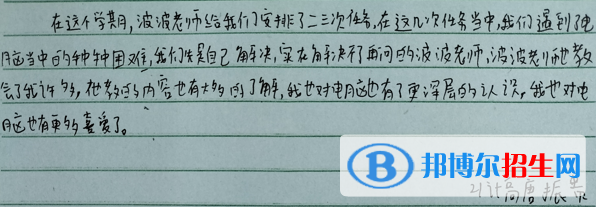 在这个学期月,波波老师给我们安排了二三次任务,在这几次任务当中,我们遇到了电
脑当中的种种困难,我们先是自己解决,实在解决不了再问的波波老师,波波老师也教
会了我许多,他教的内容也有大多的了解,我也对电脑也有了更深层的认识,我也对电
脑也有更多喜爱了。
B 邦博尔招生网
21计高唐振